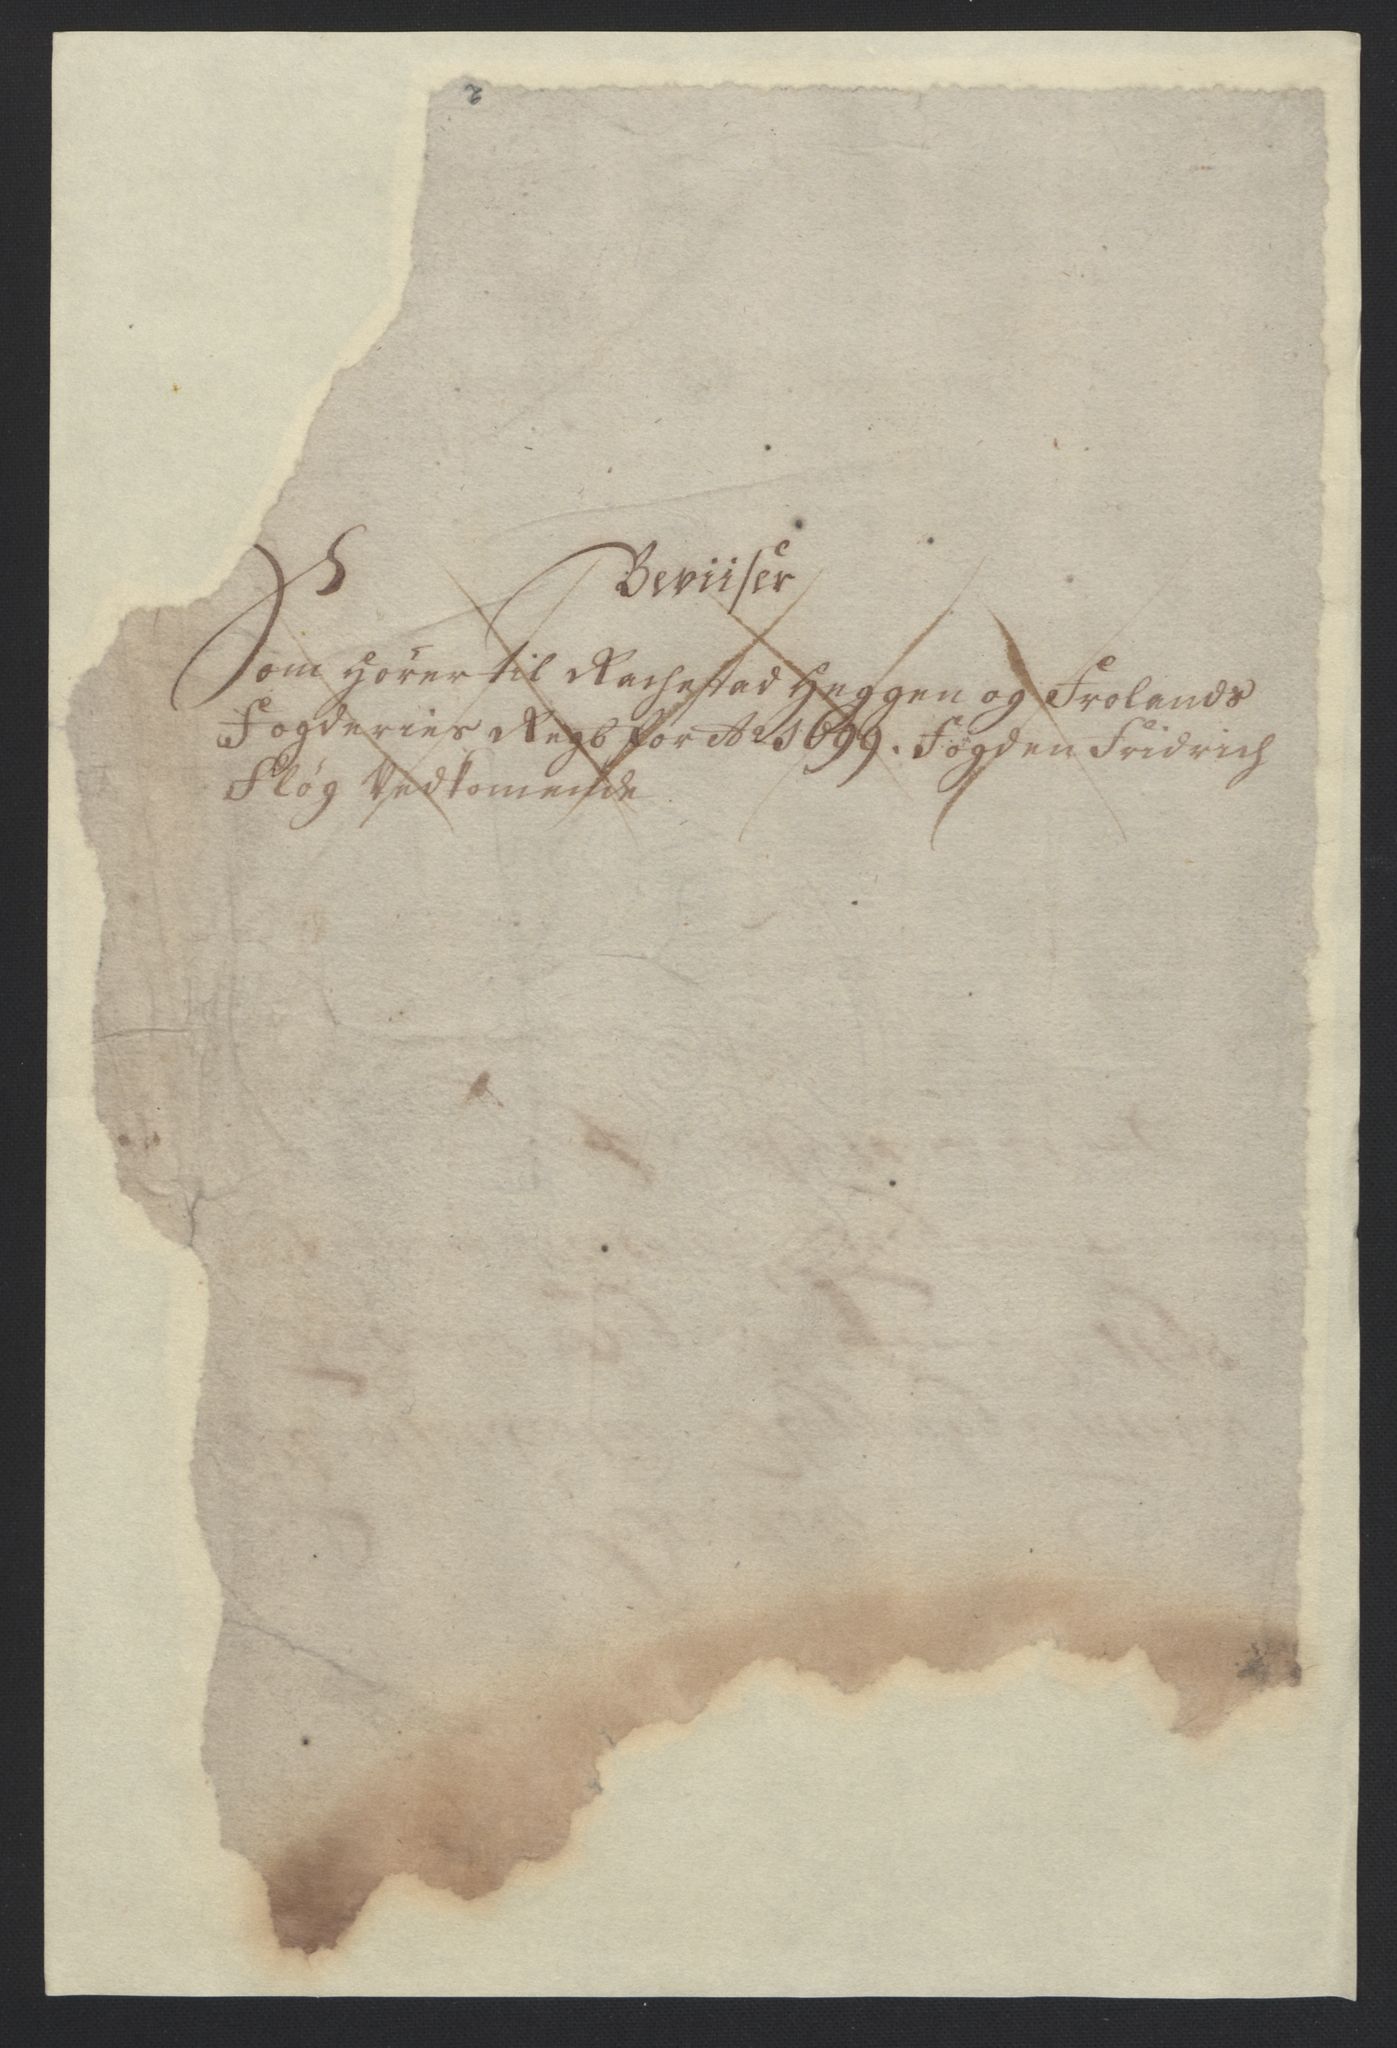 Beviiser
Som hører til Rachestad Heggen og Frolands
Fogderies Regb for Ao 1699. Fogden Fridrich
Fløg Vedkomende